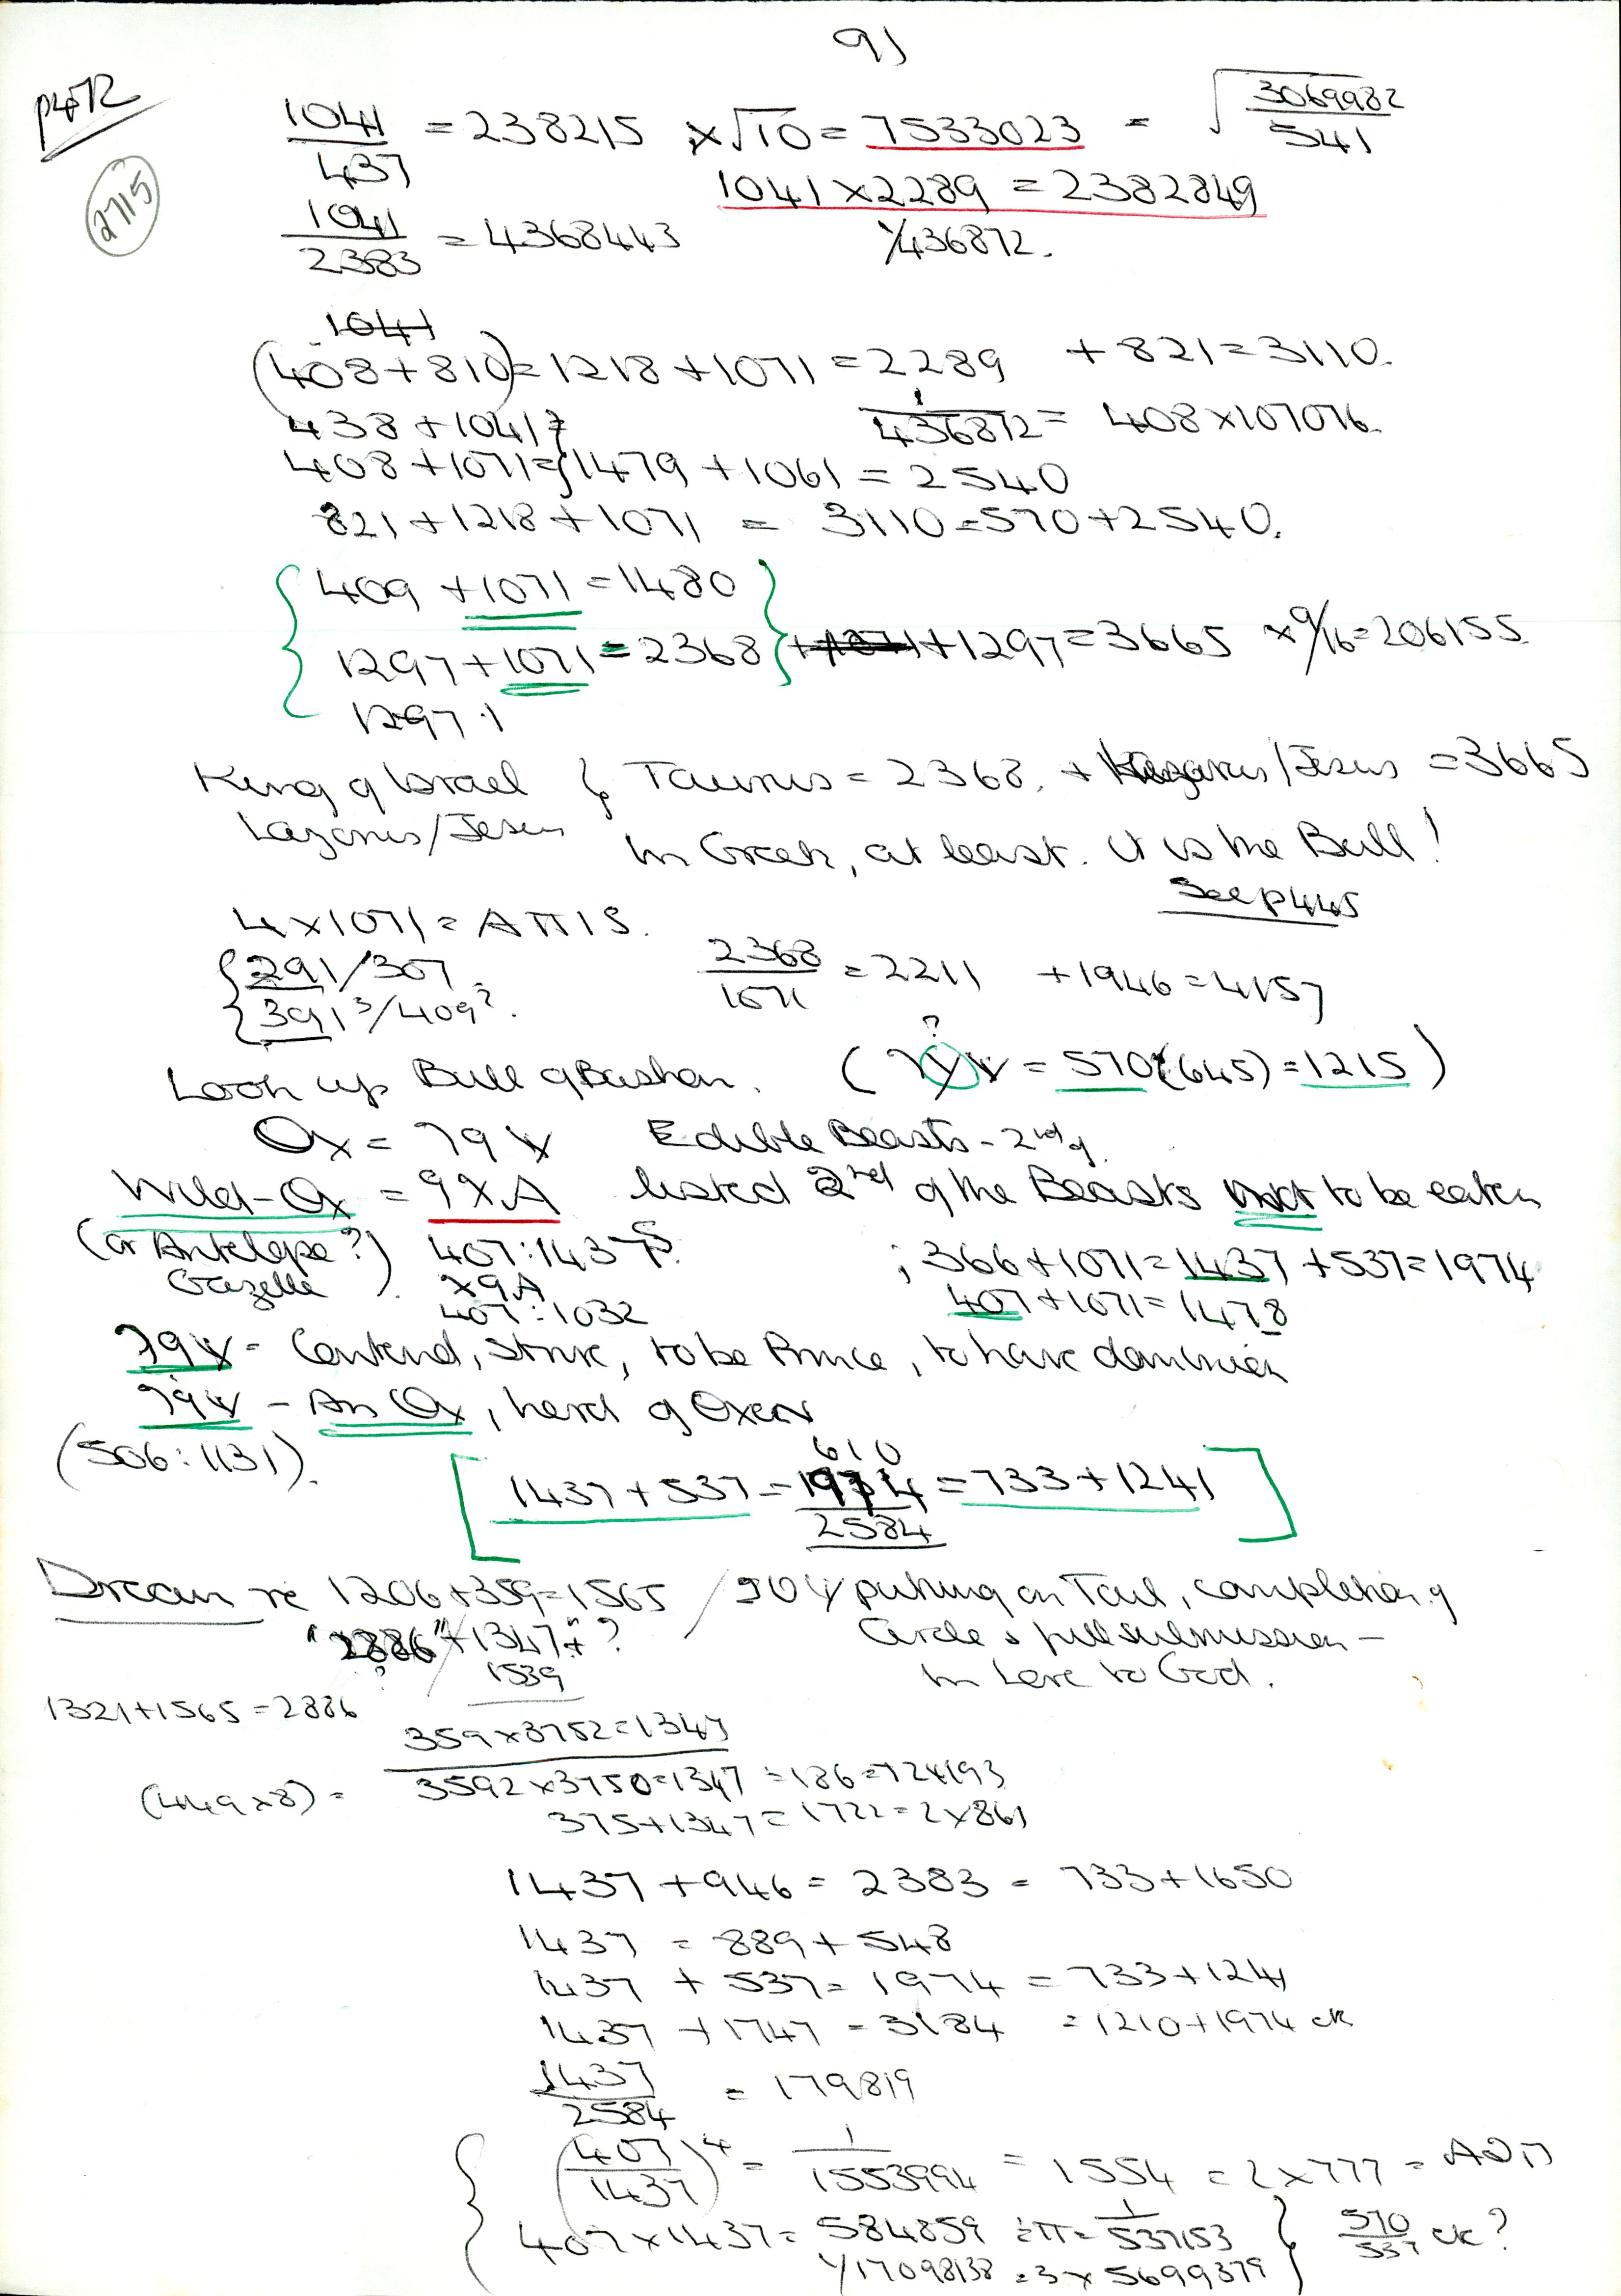 91
p472
2715
1041/437 = 238215 x√10 = 7533023 = √3069982/541
1041 x 2289 = 2382849
1041/2383 = 4368443 1/436872.
1041
(408+810) = 1218 + 1071 = 2289 + 821 = 3110.
438 + 1041 } 1/436872 = 408 x 107076.
408 + 1071 = } 1479 + 1061 = 2540
821 + 1218 + 1071 = 3110 = 570 + 2540.
{ 409 + 1071 = 1480 }
1297 + 1071 = 2368 } + 1297 = 3665 x 9/16 = 206155
1297.1
King of Israel } Taurus = 2368. + Lazarus/Jesus = 3665
Lazarus/Jesus In Greek, at least. It is the Bull!
See p445
4 x 1071 = ATTIS.
{ 291/307 = 2368/1071 = 2211 + 1946 = 4157
{ 391?/409?.
Look up Bull of Bashan. ( = 570 (645) = 1215 )
Ox = Edible Beasts - 2nd of.
Wild-Ox = listed 2nd of the Beasts not to be eaten
(or Antelope?) 407:1437 ; 366 + 1071 = 1437 + 537 = 1974
Gazelle 407 + 1071 = 1478
407:1032
- Contend, Strive, to be Prince, to have dominion
- An Ox, herd of Oxen
(506:1131).
610
[ 1437 + 537 = 1974 = 733 + 1241 ]
2584
Dream re 1206 + 359 = 1565 / putting on Tail, completion of
"2886" + 1347 + ? Circle & full submission –
1539 in Love to God.
1321 + 1565 = 2886
359 x 3752 = 1347
(449 x 8) = 3592 x 3750 = 1347 = 186 = 724193
375 + 1347 = 1722 = 2 x 861
1437 + 946 = 2383 = 733 + 1650
1437 = 889 + 548
1437 + 537 = 1974 = 733 + 1241
1437 + 1747 = 3184 = 1210 + 1974 ck
1437/2584 = 179819
{ (407/1437)^4 = 1/1553994 = 1554 = 2 x 777 =
407 x 1437 = 584859 ÷ π = 1/537153 } 570/537 ck?
1/17098138 = 3 x 5699379 }